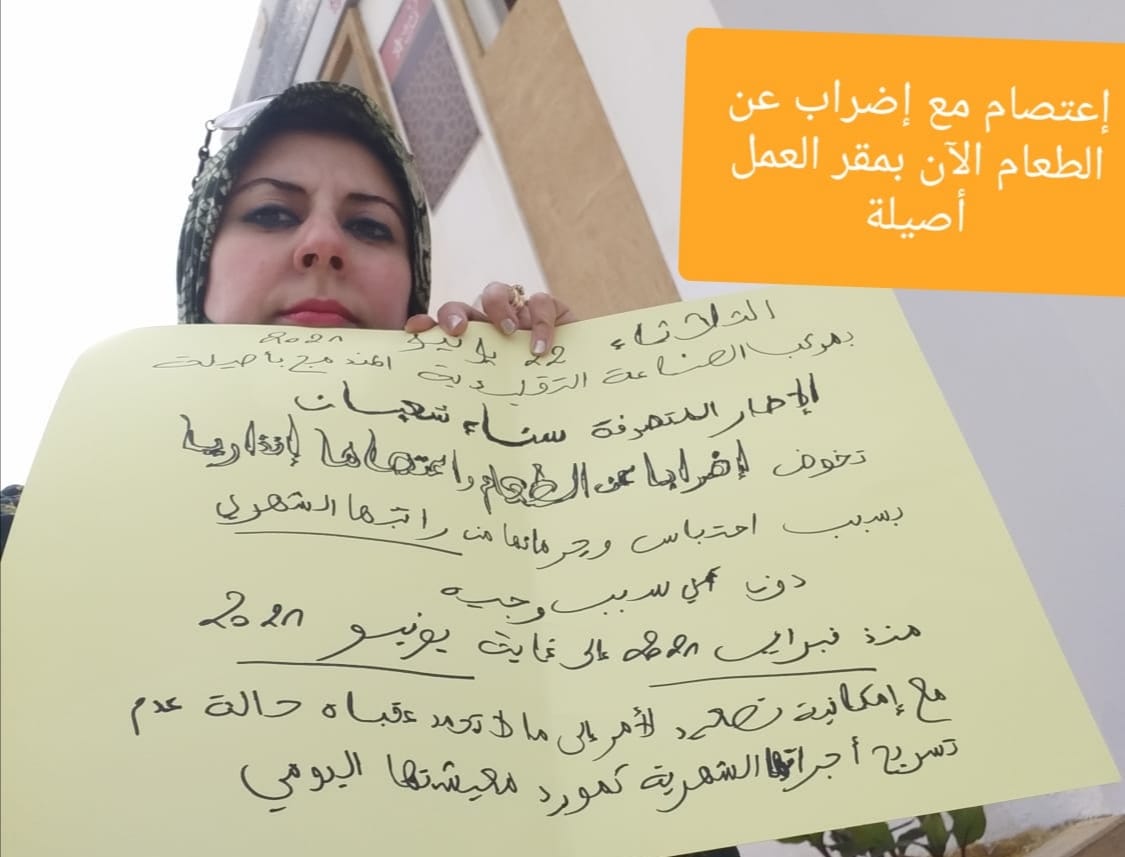 إعتصام مع إضراب عن
الطعام الآن بمقر العمل
أصيلة
الثلاثاء 22 يونيو 2021
بمركب الصناعة التقليدية المندمج بأصيلة
الإطار المتصرفة سناء شعبان
تخوض إضرابا عن الطعام واعتصاما إنذاريا
بسبب احتباس وحرمانها من راتبها الشهري
دون أي سبب وجيه
منذ فبراير 2021 إلى غاية يونيو 2021
مع إمكانية تصعيد لأمر إلى ما لا تحمد عقباه حالة عدم
تسريح أجراتها الشهرية كمورد معيشتها اليومي